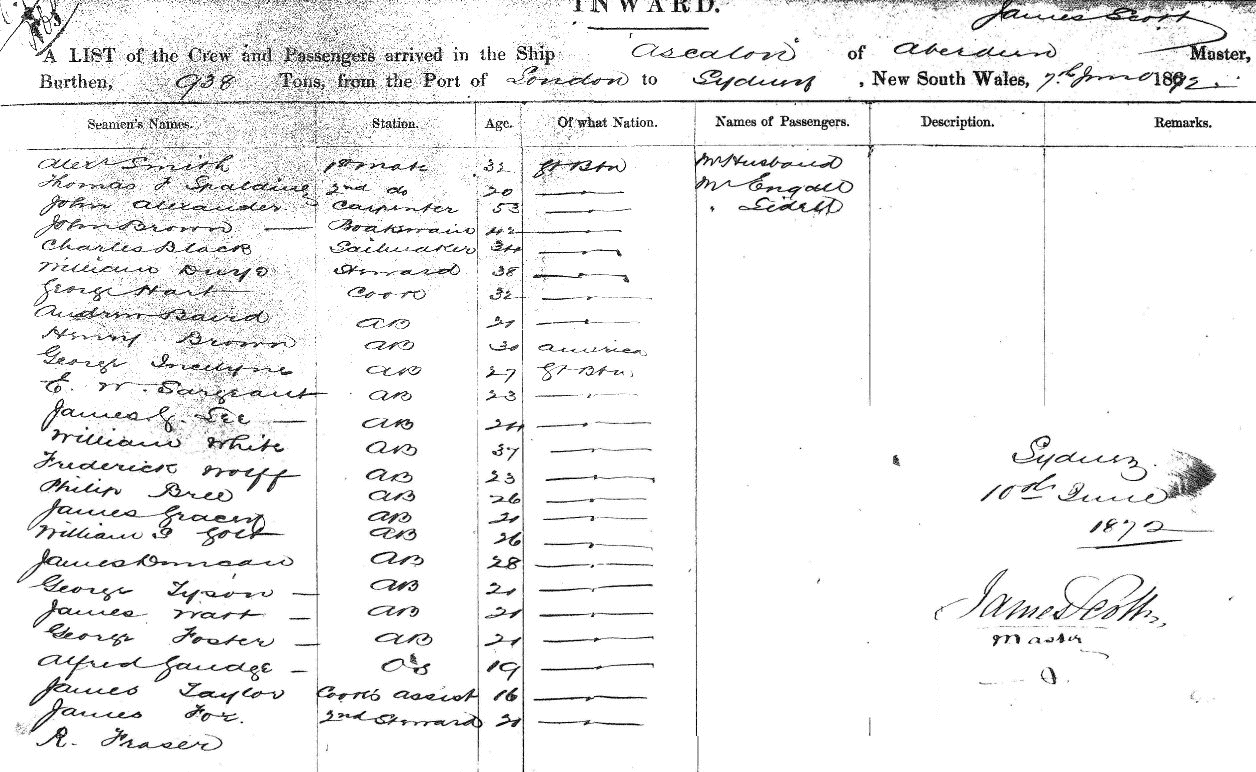 INWARD.
James Scott
A LIST of the Crew and Passengers arrived in the Ship "Ascalon" of Aberdeen Master,
Burthen, 938 Tons, from the Port of London to Sydney, New South Wales, 7th June 1872.
Seamen's Names. Station. Age. Of what Nation. Names of Passengers. Description. Remarks.
Alexr Smith 1st mate 32 Gt Btn Mr Husband
Thomas J Spalding 2nd do 20 — Mr Engall
John Alexander Carpenter 53 — " Sidell
John Brown — Boatswain 42 —
Charles Black Sailmaker 34 —
William Steward 38 —
George Hart Cook 32 —
Andrew Baird AB 21 —
Henry Brown AB 30 America
George AB 27 Gt Btn.
E. W. Sargeant AB 23 —
James G. Lee — AB 24 —
William White AB 37 —
Frederick Wolff AB 23 —
Philip Bree AB 26 —
James Gracey AB 21 —
William J Golt AB 26 —
James Duncan AB 28 —
George Tyson — AB 21 —
James Watt — AB 21 —
George Foster — AB 21 —
Alfred Gaudge — OS 19 —
James Taylor Cooks Assist 16 —
James For. 2nd Steward 21 —
R. Fraser
Sydney
10th June
1872
James Scott
Master